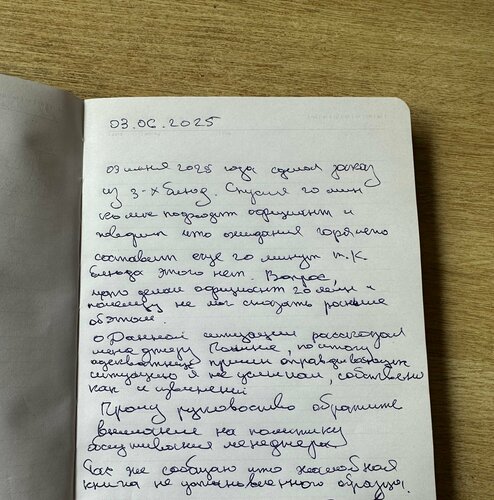 03.06.2025
03 июня 2025 года сделал заказ
из 3-х блюд. Спустя 20 мин
ко мне подходит официант и
говорит что ожидания горячего
составит еще 20 минут т.к.
блюда этого нет. Вопрос,
что делал официант 20 мин и
почему не мог сказать раньше
об этом.
О данной ситуации рассказал
менеджеру, по итогу
адекватных причин оправдывающих
ситуацию я не услышал, собственно
как и извинений.
Прошу руководство обратить
внимание на политику
обслуживания менеджера.
Так же сообщаю что жалобная
книга не установленного образца.